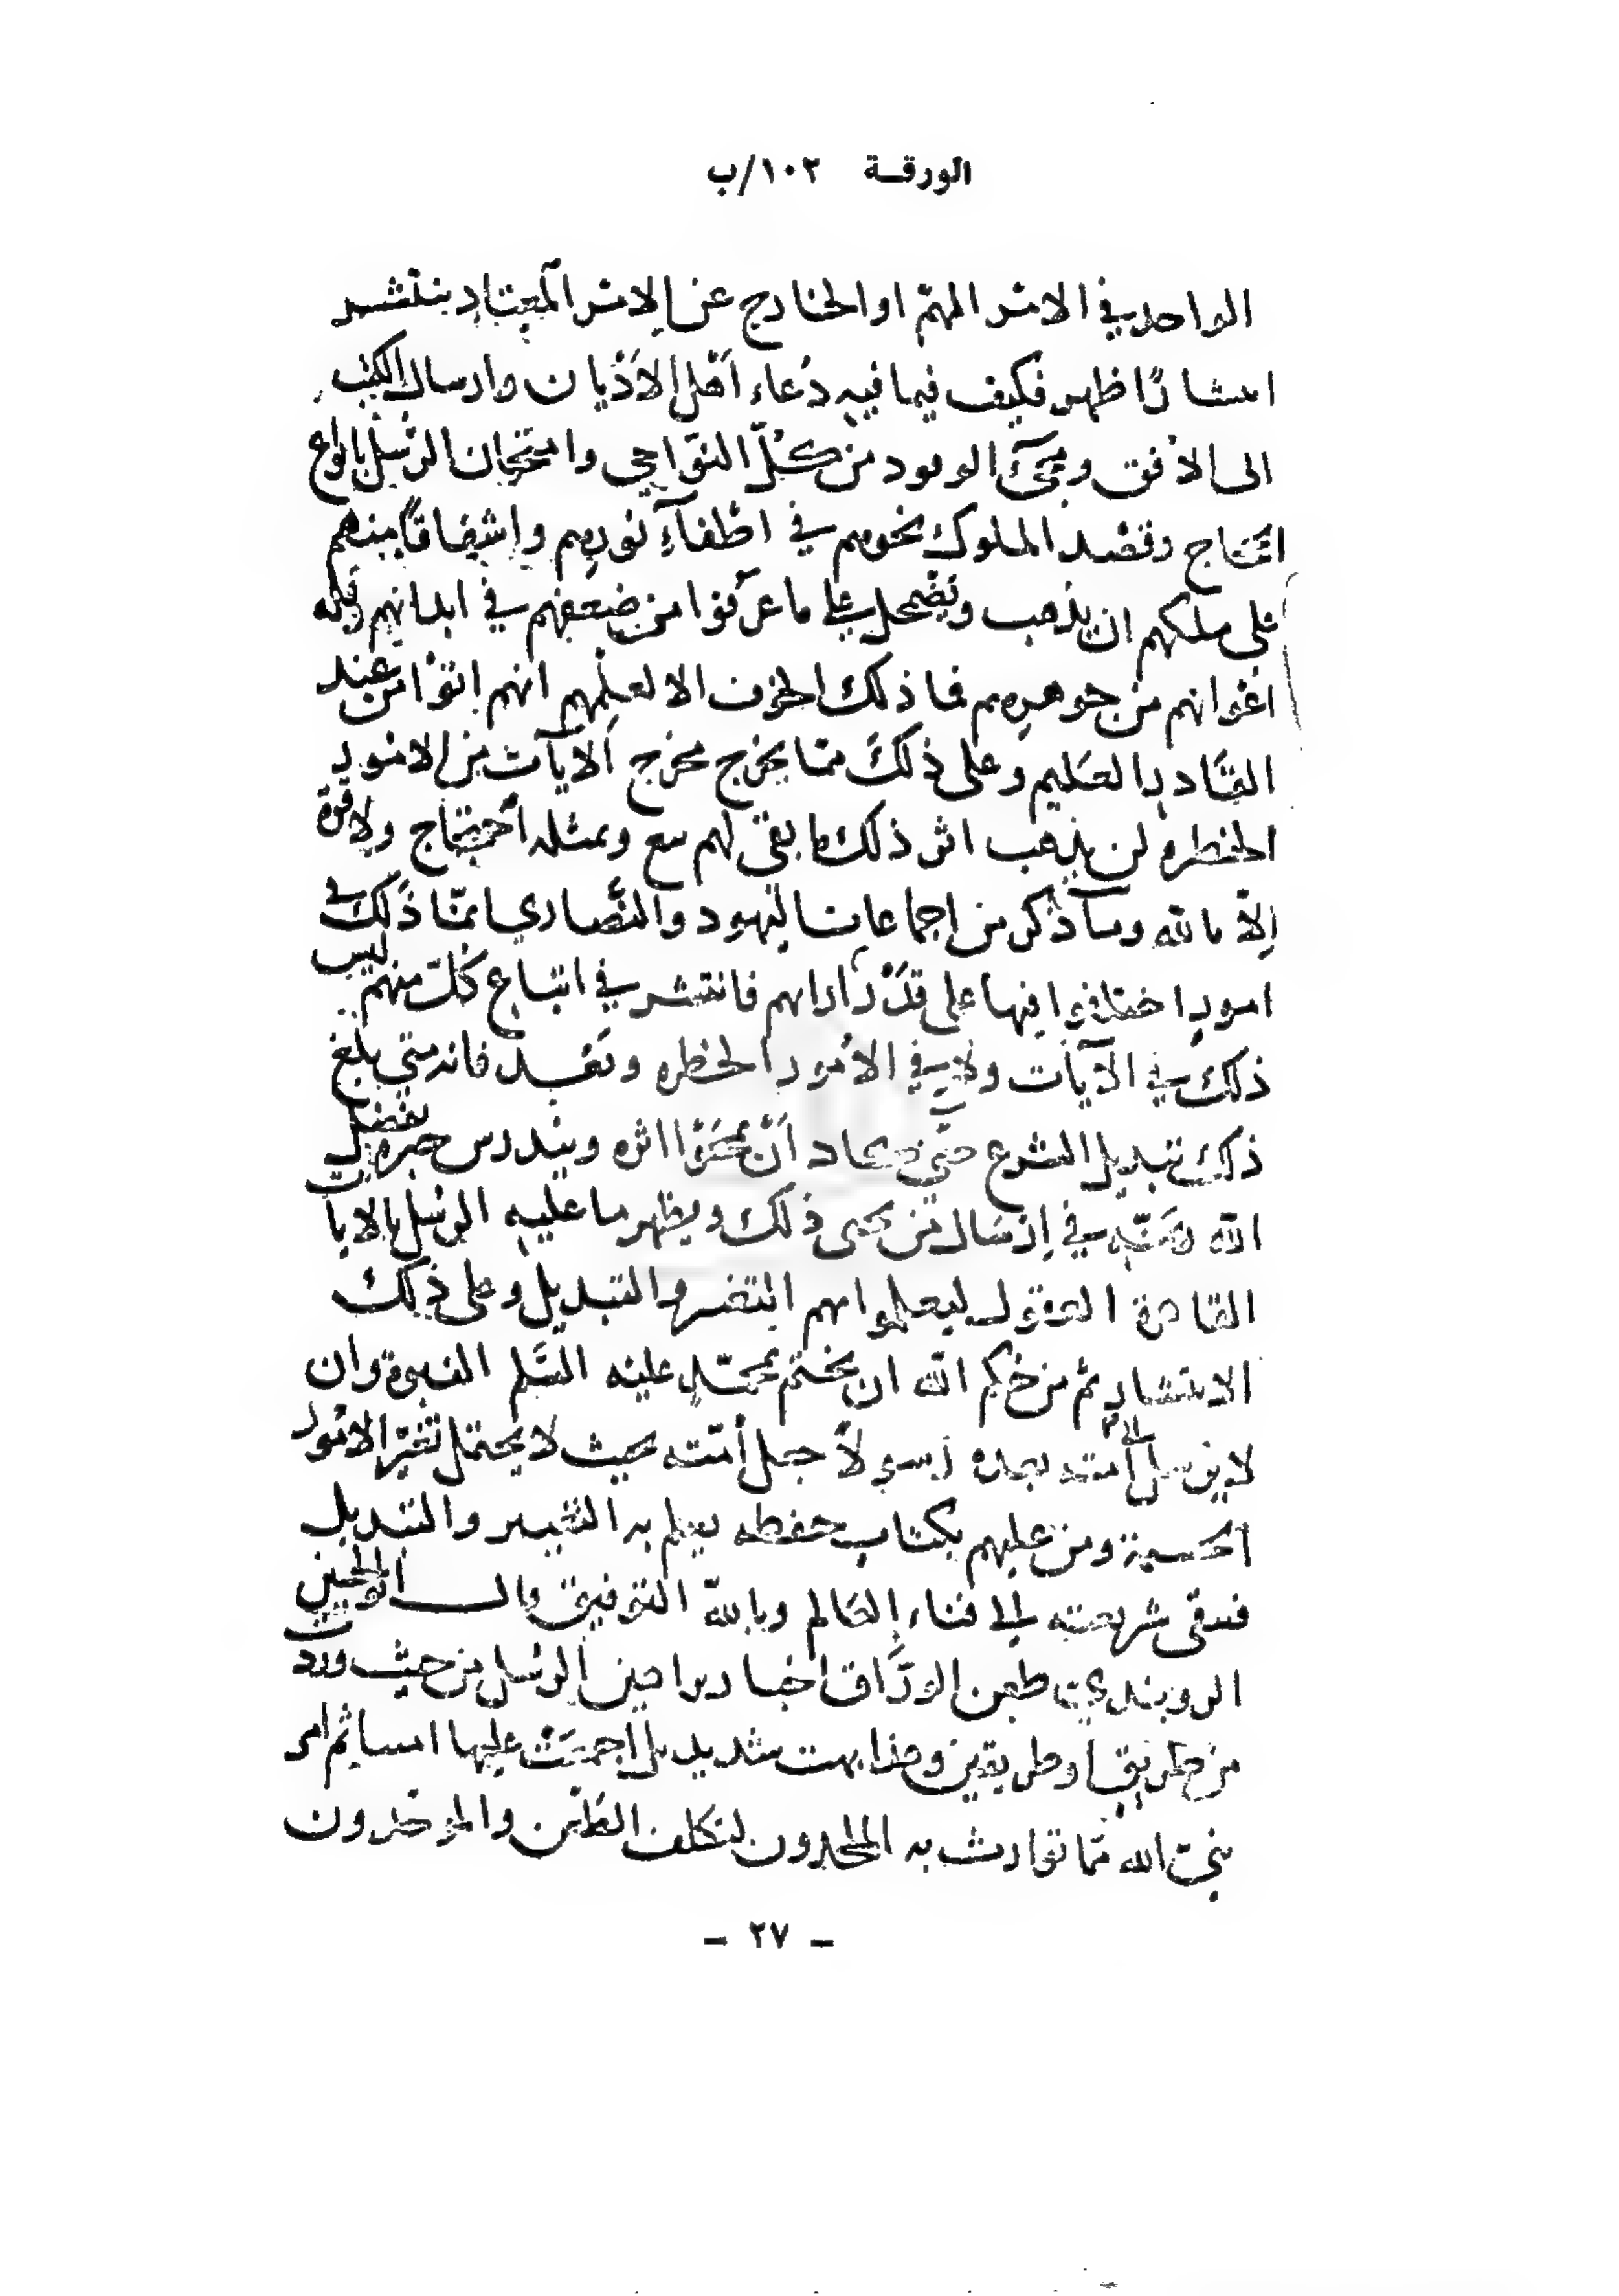 الورقة ١٠٢/ب
الواحد في الامر المهم او الخارج عن الامر المعتاد ينتشر
انتشارًا ظهر فكيف فيما فيه دُعاء اَهْل الاَدْيان وارسال الكتب
الى الاُفق ومجئ الوفود من كلّ النّواحي وامتحان الرسُل بانواع
الحجاج وقصْد الملوك نحوهم في اطْفآءِ نورِهم واشفاقًا منهم
على ملكهم ان يذهب ويضمحل على ما عرَفوا من ضعفهم في ابدانهم وقله
اعوانهم من جوهرهم فما ذلك الخوف الا لعلمِهم انهم اتوْا من عند
القَادر العَليم وعلى ذلكَ ممّا يخرج مخرج الاَيآت من الامُور
الخطره لن يذهب اثر ذلك ما بقى لهم سمع وبمثله احتجاج ولا قوة
اِلاّ بالله وما ذكر من اجماعات اليهود والنَّصاري انمّا ذَلك في
امورٍ اختلفوا فيها على قدْر اَراىهم فانتشر في اتباع كُلّ منهم ليس
ذلك في الآيات ولا في الاُمور الخطره وبَعْد فانه متي بلغ
ذلك تبديل الشرع حتي كاد اَنْ يمحَوْا اثره ويندرس خبره بفضل
الله ومَنّه في اِرْسَال مَن يحيى ذلك ويظهر ما عليه الرسُل بالايات
القاهرة العقول ليعلموا بهم التغير والتبديل وعلى ذلك
الانتشار ثم من حُكم الله ان يختم بمحمّدٍ عليْه السَّلم النبوة وان
لا يرسل الى اُمته بعده رسولاً جعل اُمّته بحيث لا يحتمل تغيّر الامُور
الحسية ومن عليهم بكتاب حفظه يعلم به التغيير والتبديل
فتبقى شريعته الى فناء العَالم وبالله التوفيق وال ابو الحسين
الروىندي طعن الورَّاق اخبار براهين الرسُل من حيث وردت
من طريق او طريقين وهذا بهت شديد بل اجمعَتْ عليها
نبىّ الله ممّا توارث به الملحدون لتكلف الطعْن والموحّدون
- ٢٧ -